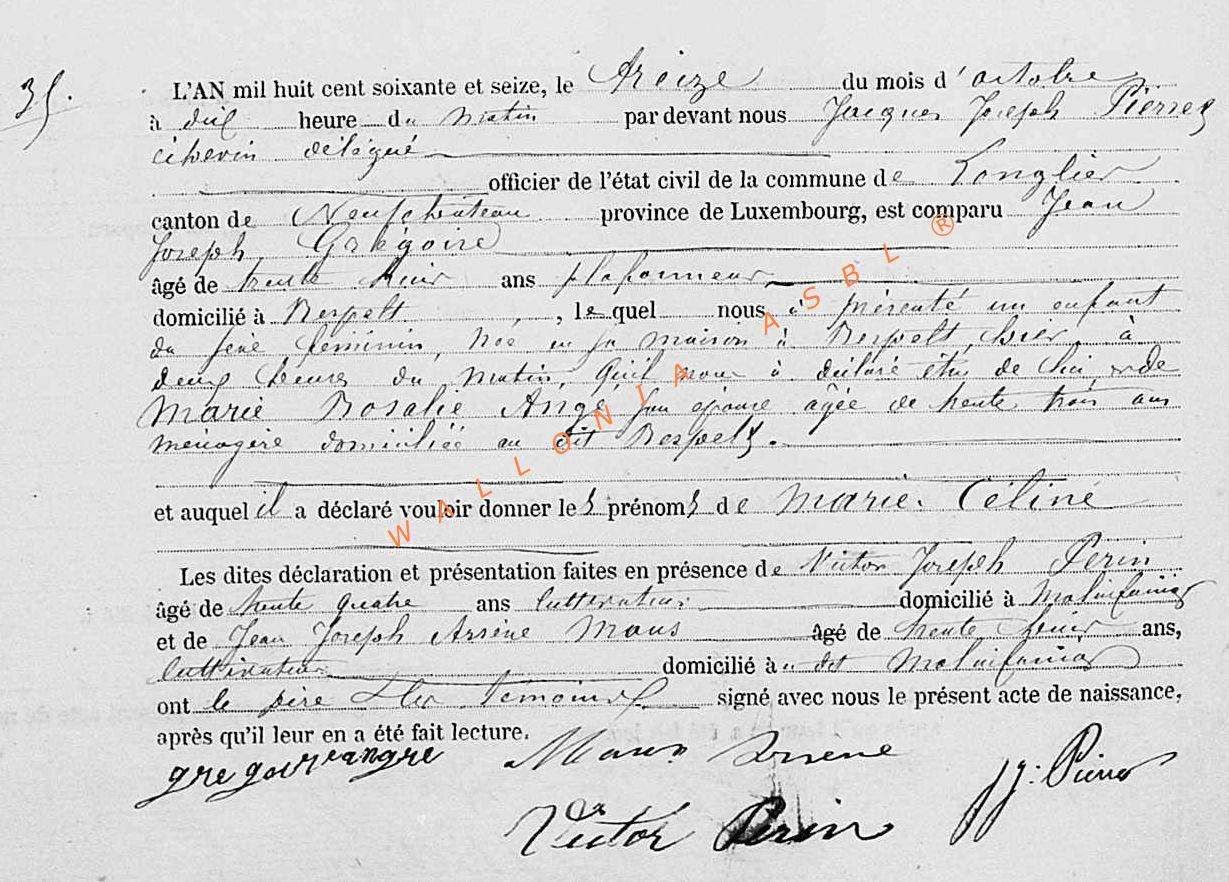 35.
L'AN mil huit cent soixante et seize, le treize du mois d'octobre
à dix heure du matin par devant nous Jacques Joseph Pierret
échevin délégué
officier de l'état civil de la commune de Longlier
canton de Neufchâteau province de Luxembourg, est comparu Jean
Joseph Grégoire
âgé de trente huit ans plafonneur
domicilié à Respelt, le quel nous à présenté un enfant
du sexe féminin, née en sa maison à Respelt, hier, à
deux heures du matin, qu'il nous à déclaré être de lui, et de
Marie Rosalie Ange son épouse âgée de trente trois ans
ménagère domiciliée au dit Respelt.
et auquel il a déclaré vouloir donner les prénoms de Marie. Céline
Les dites déclaration et présentation faites en présence de Victor Joseph Perin
âgé de trente quatre ans cultivateur domicilié à Molinfaing
et de Jean Joseph Arsène Maus âgé de trente huit ans,
cultivateur domicilié à u dit Molinfaing
ont le père & les témoins signé avec nous le présent acte de naissance,
après qu'il leur en a été fait lecture.
Maus Arsene
JJ: Pierret
Victor Perin
WALLONIA ASBL ®